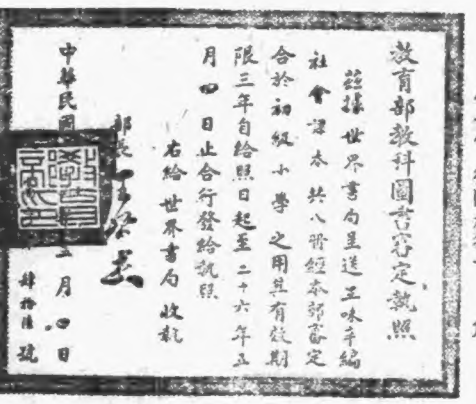 教育部教科圖書審定執照
茲據世界書局呈送王味辛編
社會課本共八冊經本部審定
合於初級小學之用其有效期
限三年自給照日起至二十六年五
月四日止合行發給執照
右給世界書局收執
部長王
中華民國 五月四日
號